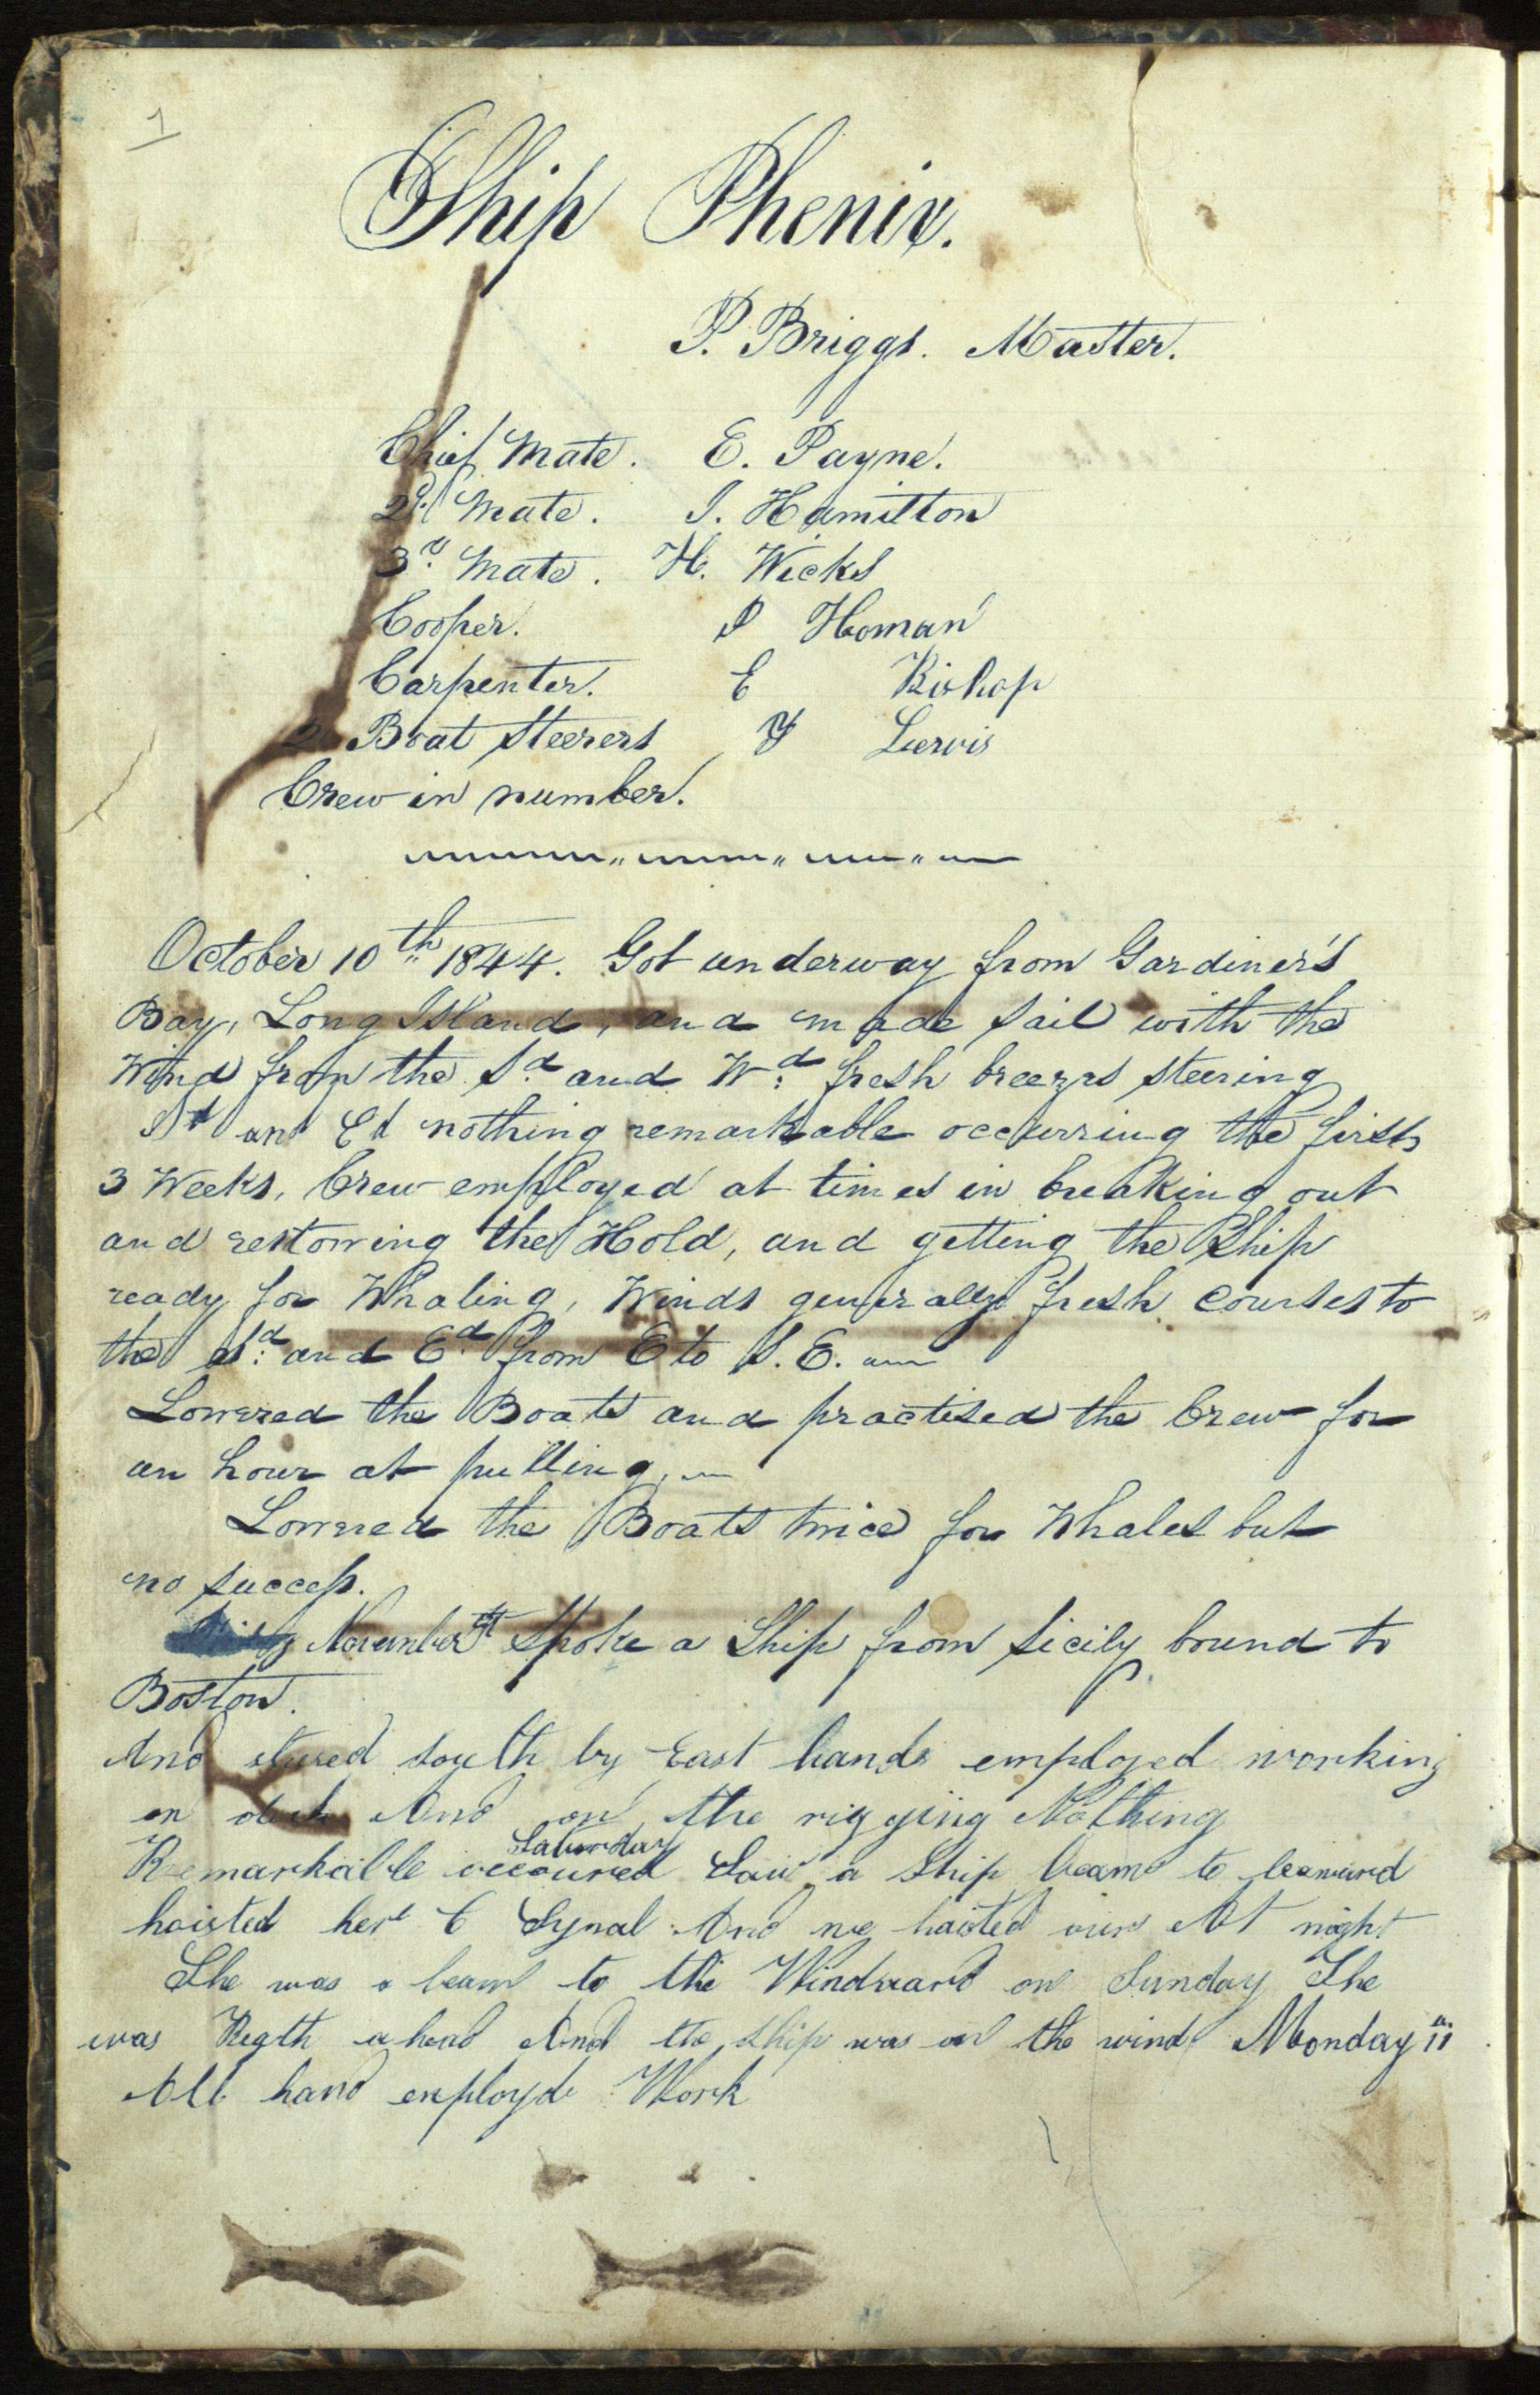 1
Ship Phenix.
P. Briggs. Master.
Chief Mate. E. Payne.
2d Mate. J. Hamilton
3d Mate. H. Wicks
Cooper. J Homan
Carpenter. E Bishop
2 Boat Steerers Lewis
Crew in number.
October 10th 1844. Got underway from Gardiner's
Bay, Long Island, and made sail with the
Wind from the Sd. and Wd. fresh breezes steering
Sd and Ed nothing remarkable occurring the first
3 Weeks, Crew employed at times in breaking out
and restowing the Hold, and getting the Ship
ready for Whaling, Winds generally fresh courses to
the Sd. and Ed. from E to S.E.
Lowered the Boats and practised the Crew for
an hour at pulling,
Lowered the Boats twice for Whales but
no success.
November Spoke a Ship from Sicily bound to
Boston.
And stured south by East hands employed working
on deck And on the rigging Nothing
Saturday
Remarkable occoured Saw a Ship beam to leeward
hoisted her C Sgnal And we hoisted ours At night
She was a beam to the Windward on Sunday She
was a head And the ship was on the wind Monday 11
All hand employd Work